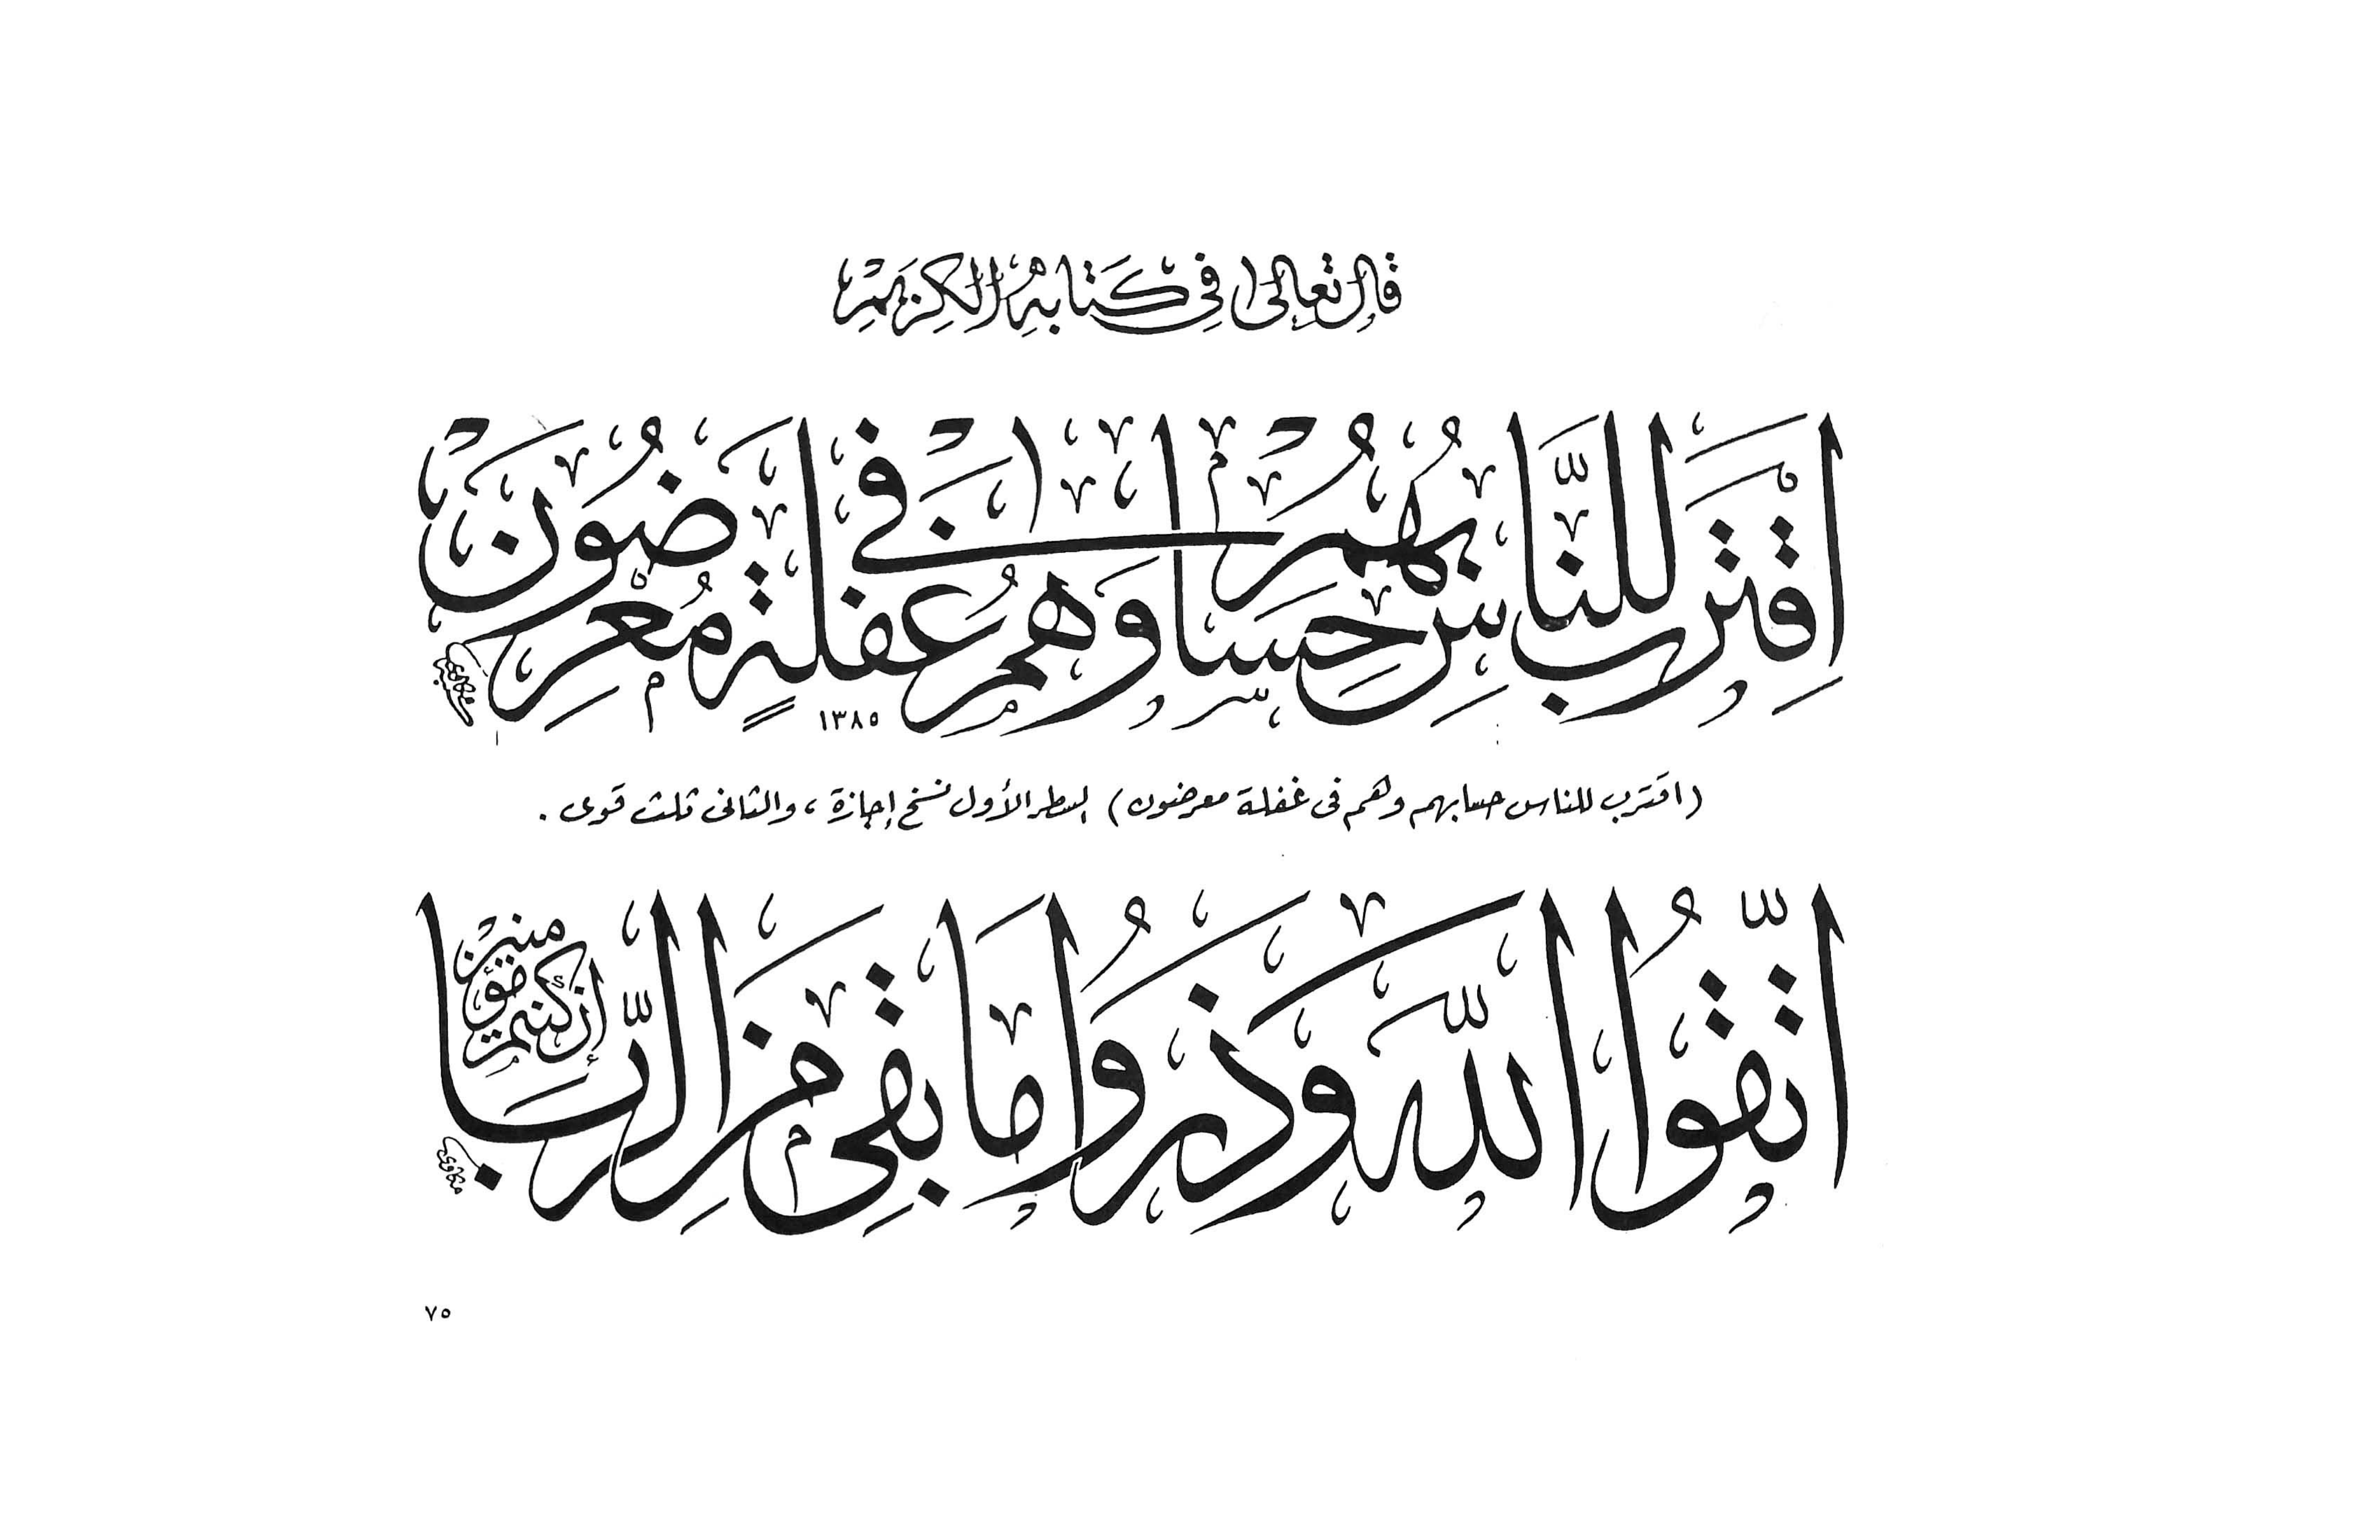 قال تعالى في كتابه الكريم
اقترب للناس حسابهم وهم في غفلة معرضون
١٣٨٥
(اقترب للناس حسابهم وهم فى غفلة معرضون) السطر الأول نسخ إجازة، والثانى ثلث قوى.
اتقوا الله وذروا ما بقي من الربا إن كنتم مؤمنين
٧٥